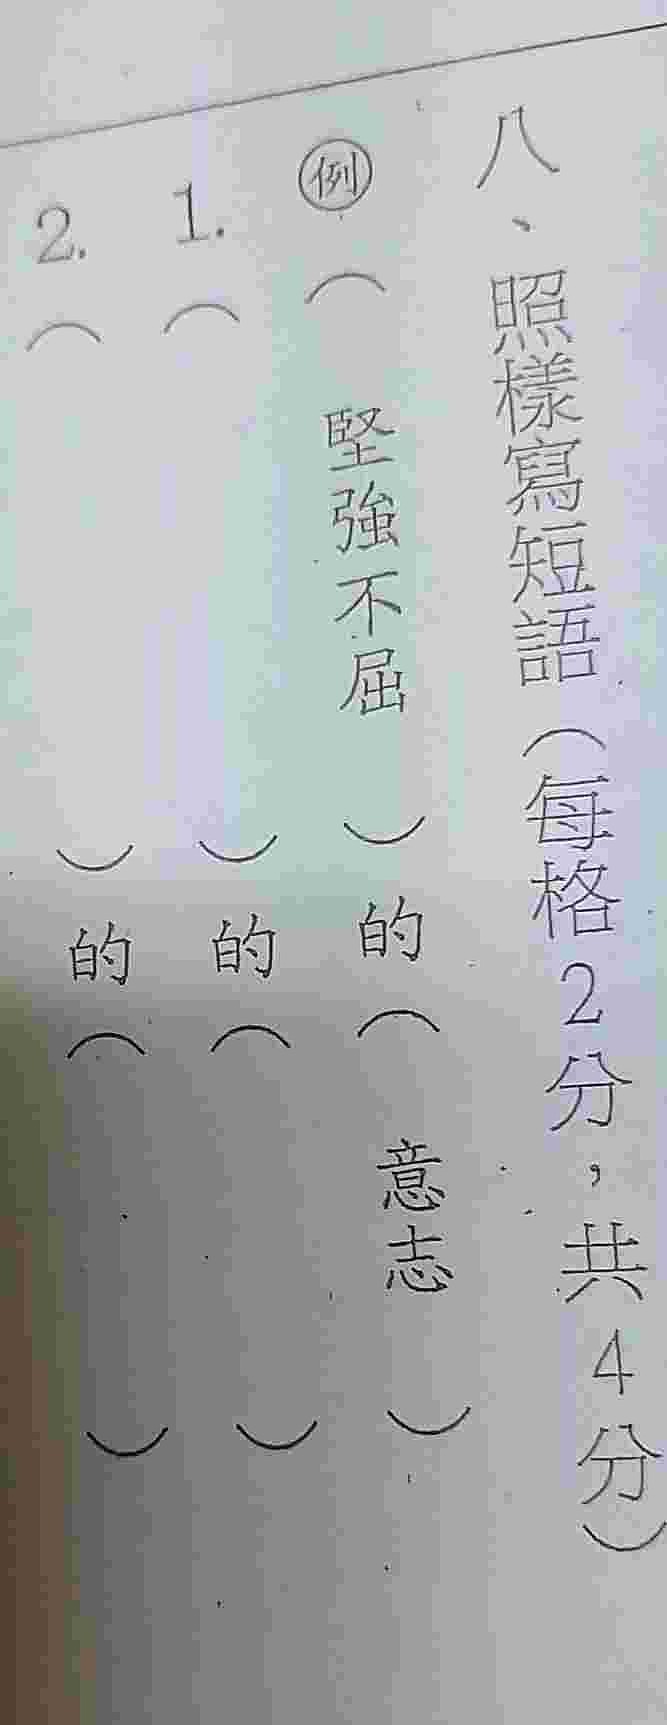 八、照樣寫短語（每格2分，共4分）
例（堅強不屈）的（意志）
1.（　　　　）的（　　　　）
2.（　　　　）的（　　　　）